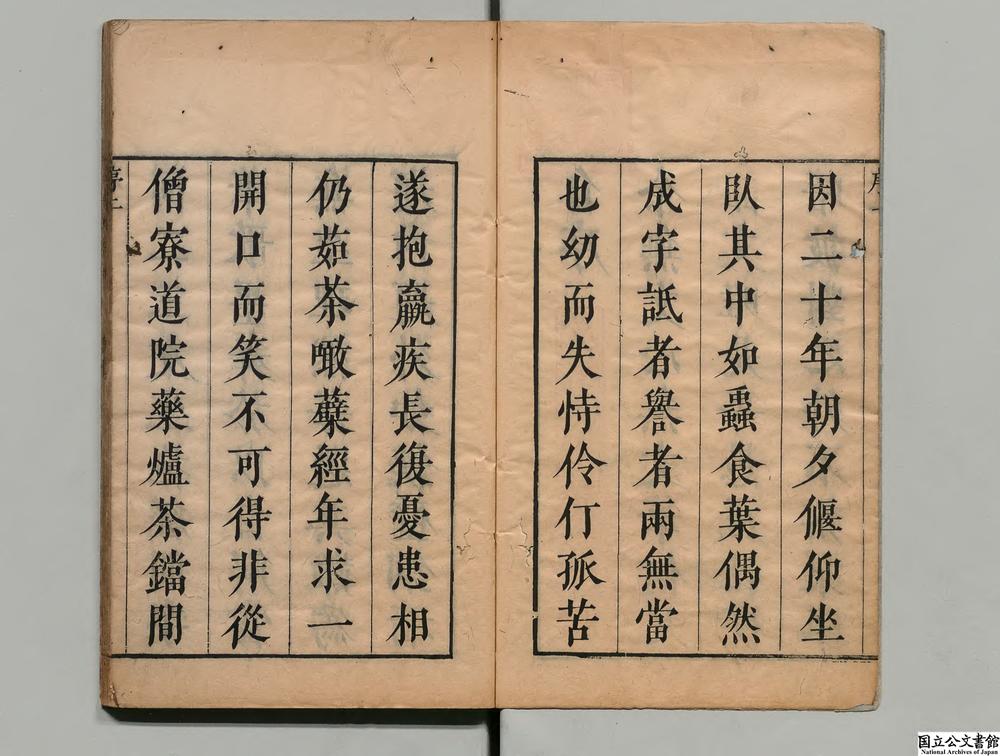 因二十年朝夕偃仰坐
臥其中如蟲食葉偶然
成字詆者譽者兩無當
也幼而失恃伶仃孤苦
遂抱羸疾長復憂患相
仍茹茶噉蘗經年求一
開口而笑不可得非從
僧寮道院藥爐茶鐺間
国立公文書館
National Archives of Japan